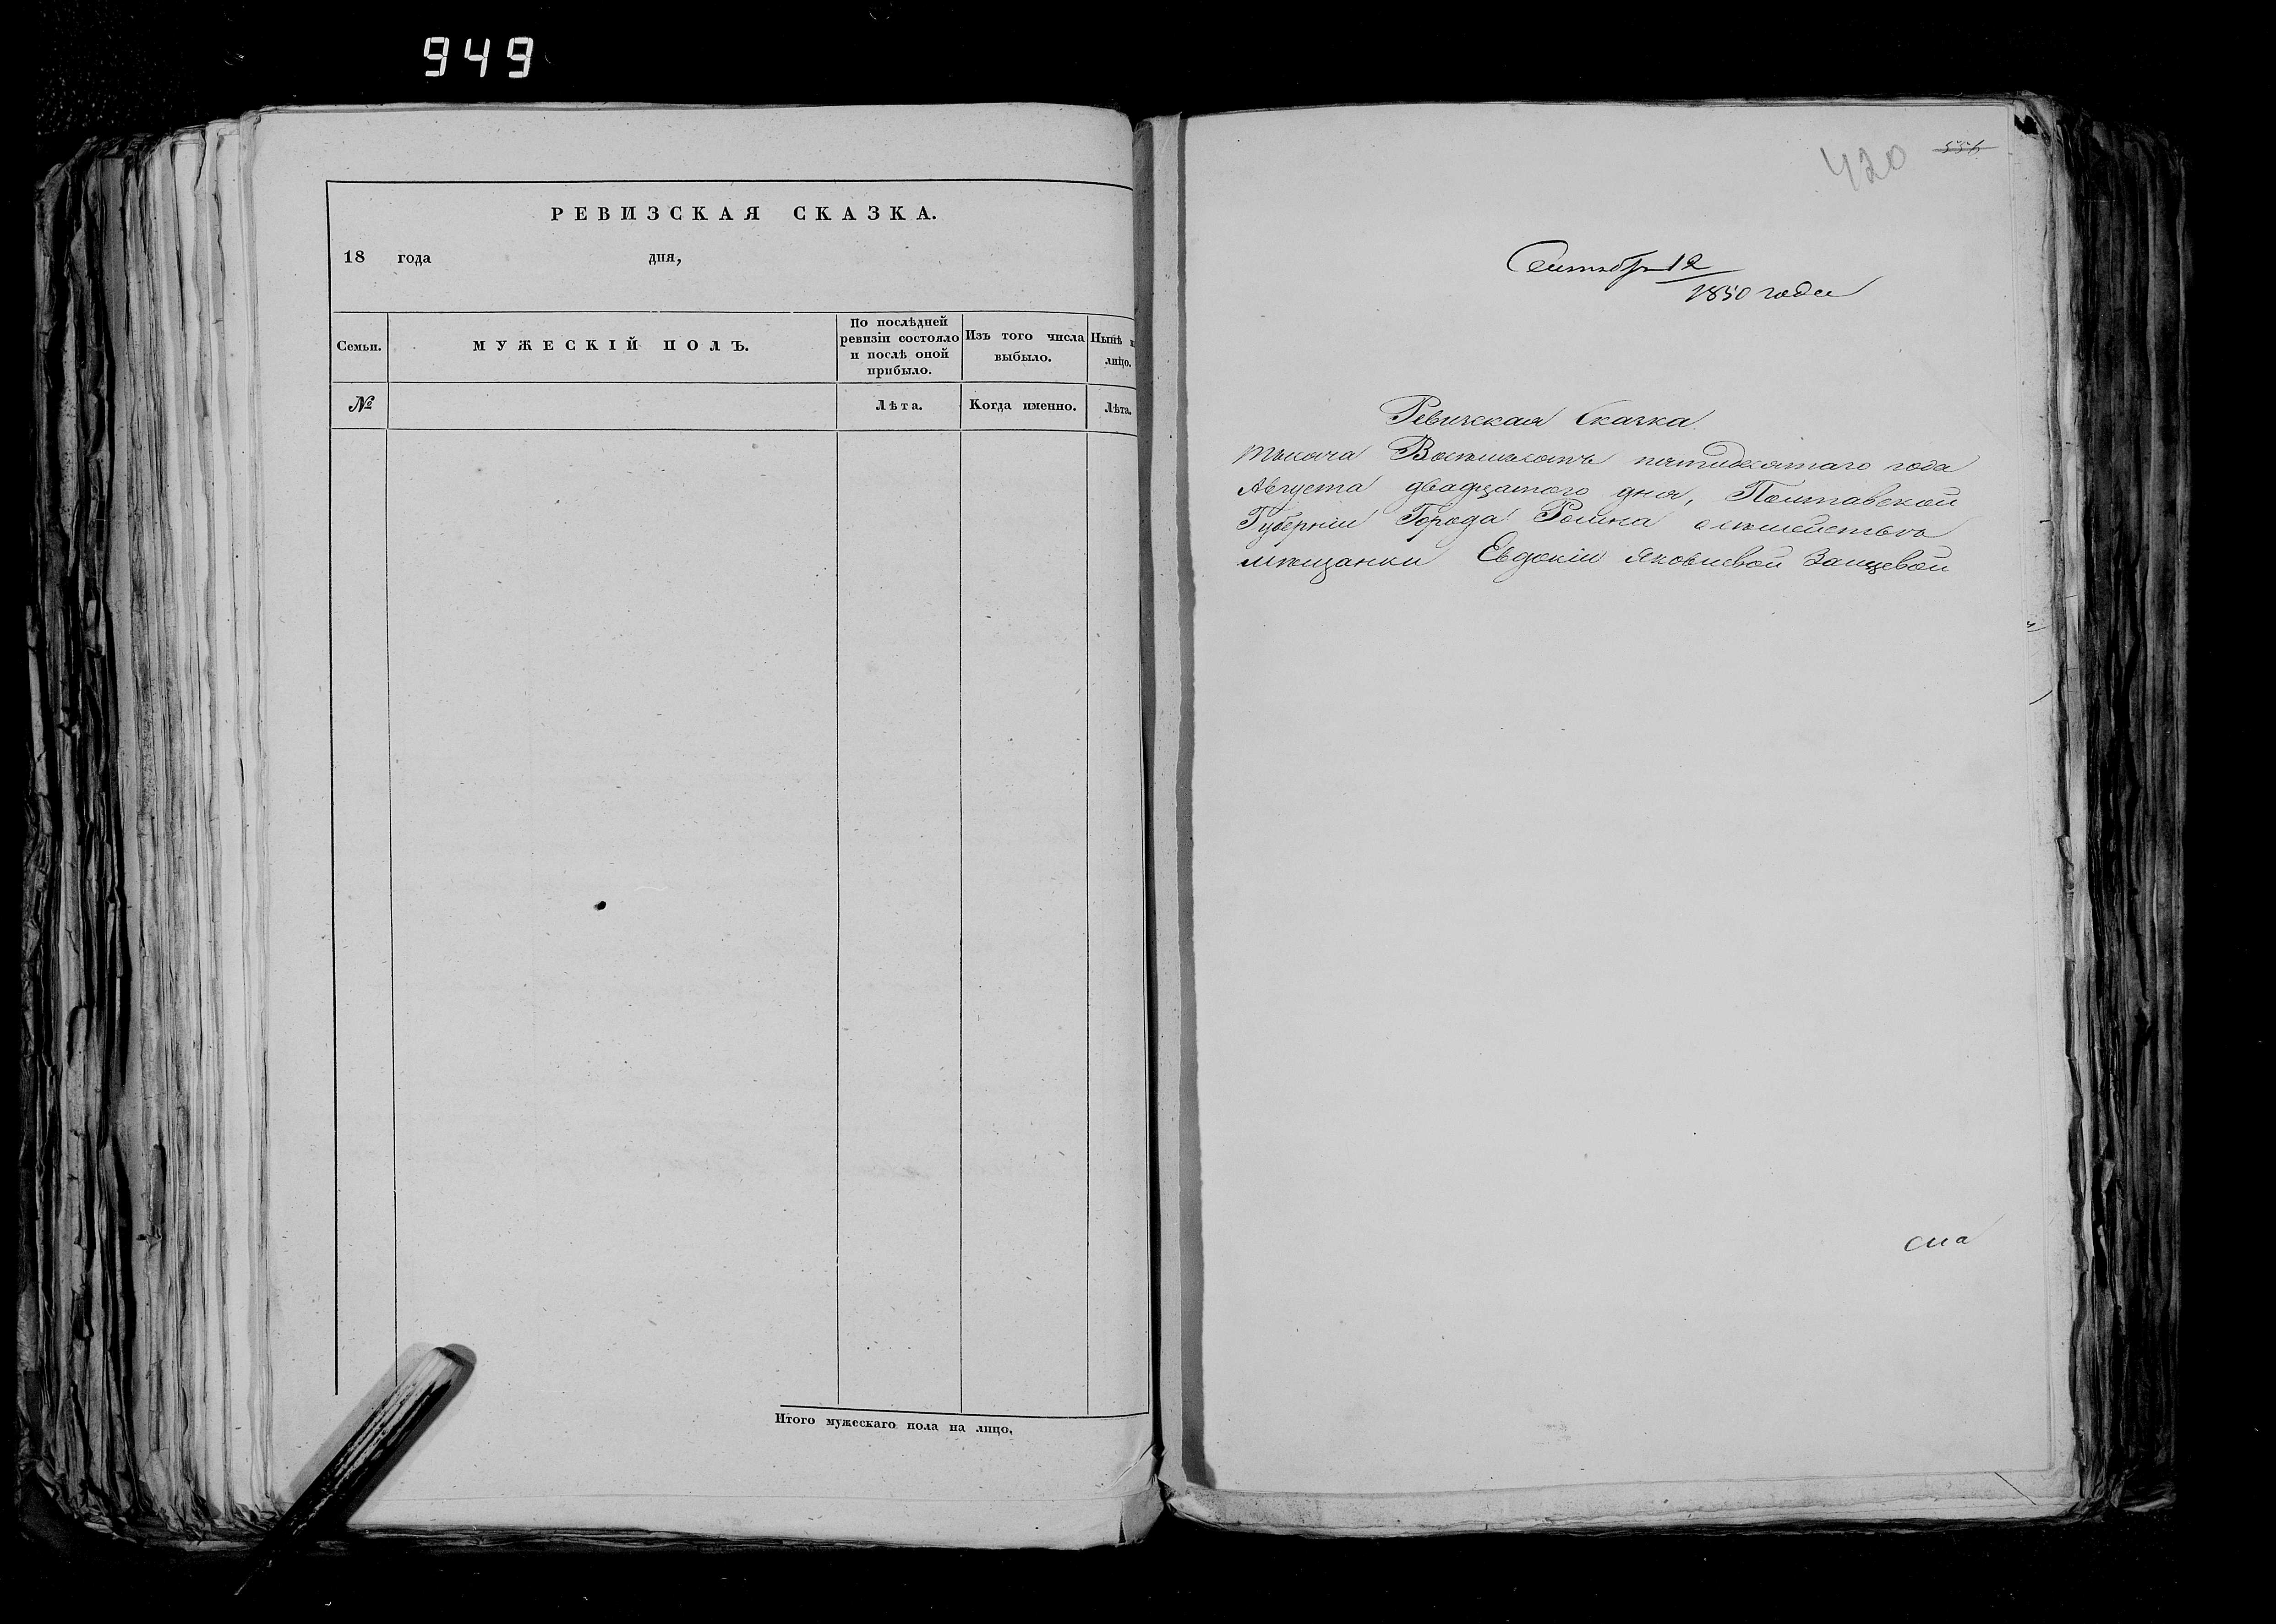 949
РЕВИЗСКАЯ СКАЗКА.
18 года дня,
Семьи.
МУЖЕСКІЙ ПОЛЪ.
По послѣдней
ревизіи состояло
и послѣ оной
прибыло.
Изъ того числа
выбыло.
Нынѣ н
лицо.
№
Лѣта.
Когда именно.
Лѣта.
Итого мужескаго пола на лицо,
420
Сентября 12
1850 года
Ревизская Сказка
тысяча Восемьсотъ пятидесятаго года
Августа двадцатого дня, Полтавской
Губерніи Города Ромна
мѣщанки Евдокіи Яковлевой Заицевой